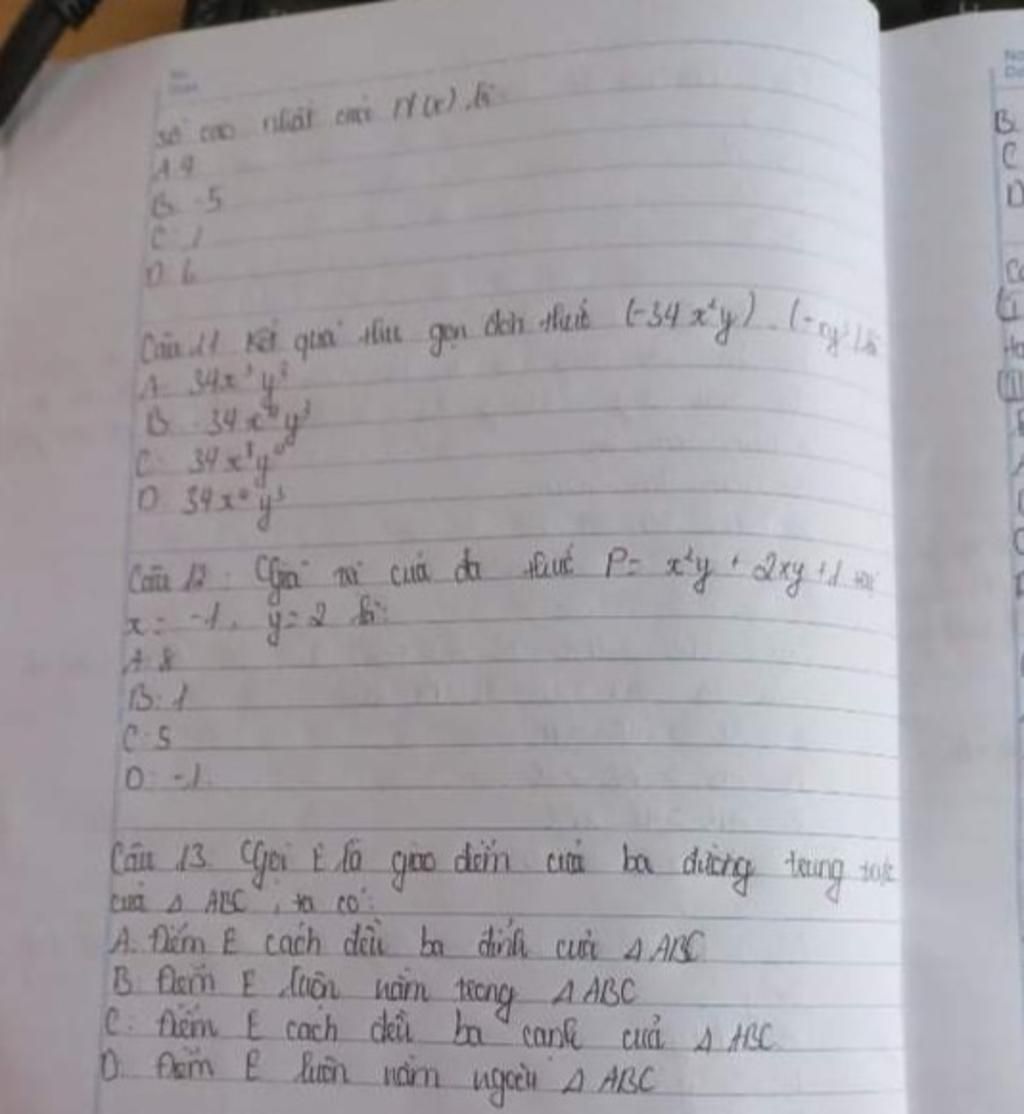 số cao nhất của N(x) là
A 9
B -5
C 1
D 6
Câu 11 Kết quả thu gọn đơn thức (-34 x²y). (-xy²) là
A. 34x³y³
B -34 y³
C. 34x³y
D 34x y³
Câu 12: Giá trị của đa thức P= x²y + 2xy +1 tại
x = -1, y = 2 là:
A. 8
B: 1
C. 5
D: -1
Câu 13. Gọi E là giao điểm của ba đường trung trực
của Δ ABC, ta có:
A. Điểm E cách đều ba đỉnh của Δ ABC
B Điểm E luôn nằm trong Δ ABC
C. Điểm E cách đều ba cạnh của Δ ABC
D. Điểm E luôn nằm ngoài Δ ABC
B.
C
D